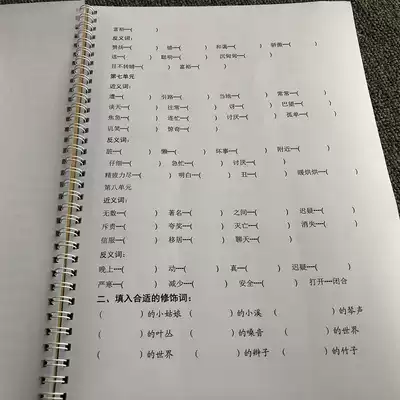 富裕—( )
反义词:
赞扬—( ) 错—( ) 和蔼—( ) 骄傲—( )
活—( ) 聪明—( ) 沉甸甸—( )
目不转睛—( ) 富裕—( )
第七单元
近义词:
遭—( ) 引路—( ) 当地—( ) 常常—( )
谈天—( ) 往常—( ) 讶—( ) 巴望—( )
焦急—( ) 连忙—( ) 讨厌—( ) 孤单—( )
讥笑—( ) 惊奇—( )
反义词:
脏—( ) 懒—( ) 坏事—( ) 附近—( )
仔细—( ) 急忙—( ) 讨厌—( )
精疲力尽—( ) 明白—( ) 丑—( ) 暖烘烘—( )
第八单元
近义词:
无数—( ) 著名—( ) 之间—( ) 迟疑—( )
斥责—( ) 夸奖—( ) 灭亡—( ) 消失—( )
信服—( ) 移居—( ) 聊天—( )
反义词:
晚上—( ) 动—( ) 真—( ) 迟疑—( )
严寒—( ) 减少—( ) 安全—( ) 打开—闭合
二、填入合适的修饰词:
( )的小姑娘 ( )的小溪 ( )的琴声
( )的叶丛 ( )的嗓音 ( )的世界
( )的世界 ( )的辫子 ( )的竹子